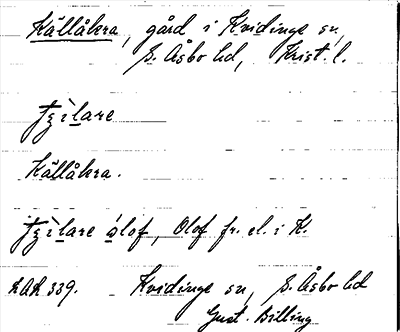 Källåkra, gård i Kvidinge sn,
S. Åsbo hd, Krist. l.
Källåkra.
olof, Olof fr. el. i K.
LAL 339. Kvidinge sn, S. Åsbo hd
Gust. Billing